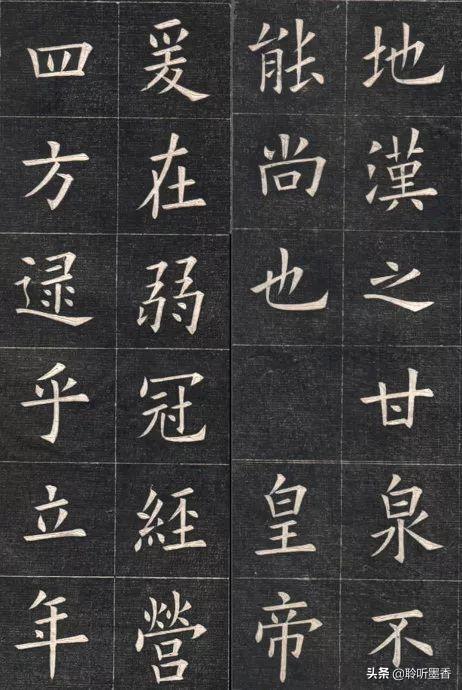 地漢之甘泉不
能尚也皇帝
爰在弱冠經營
四方逯乎立年
头条 @聆听墨香